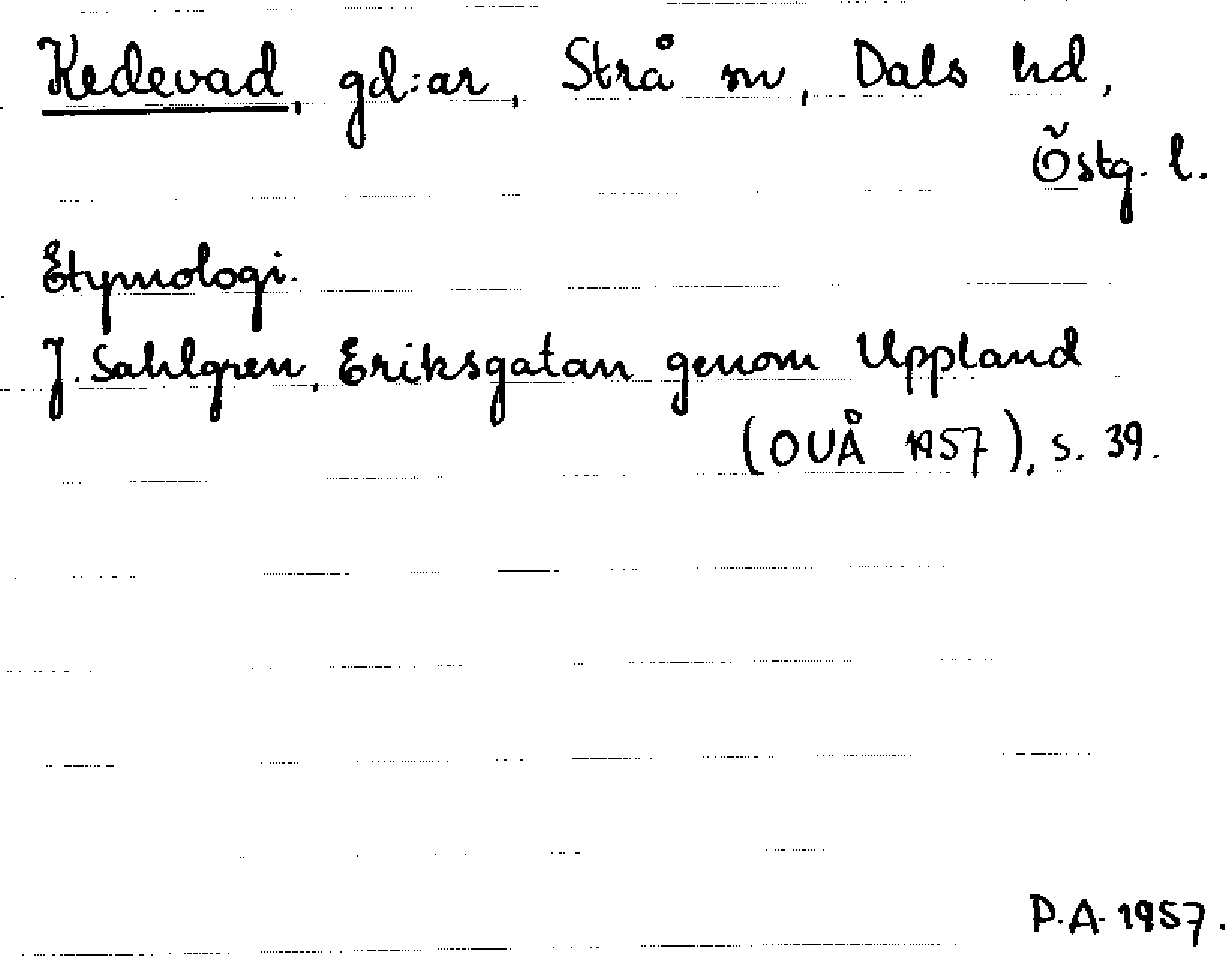 Kedevad, gd:ar, Strå sn, Dals hd,
Östg. l.
Etymologi.
J. Sahlgren, Eriksgatan genom Uppland
(OUÅ 1957), s. 39.
P.A. 1957.